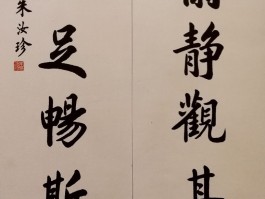 静觀其
足暢斯
朱汝珍